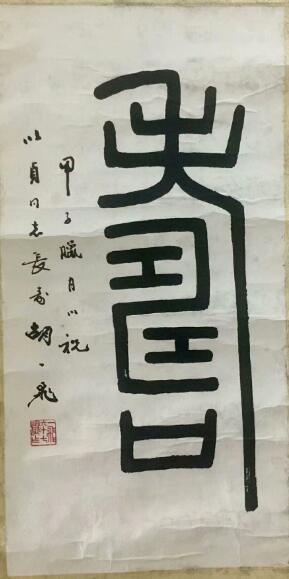 壽
甲子臘月以祝
以貞同志長壽 胡一飛